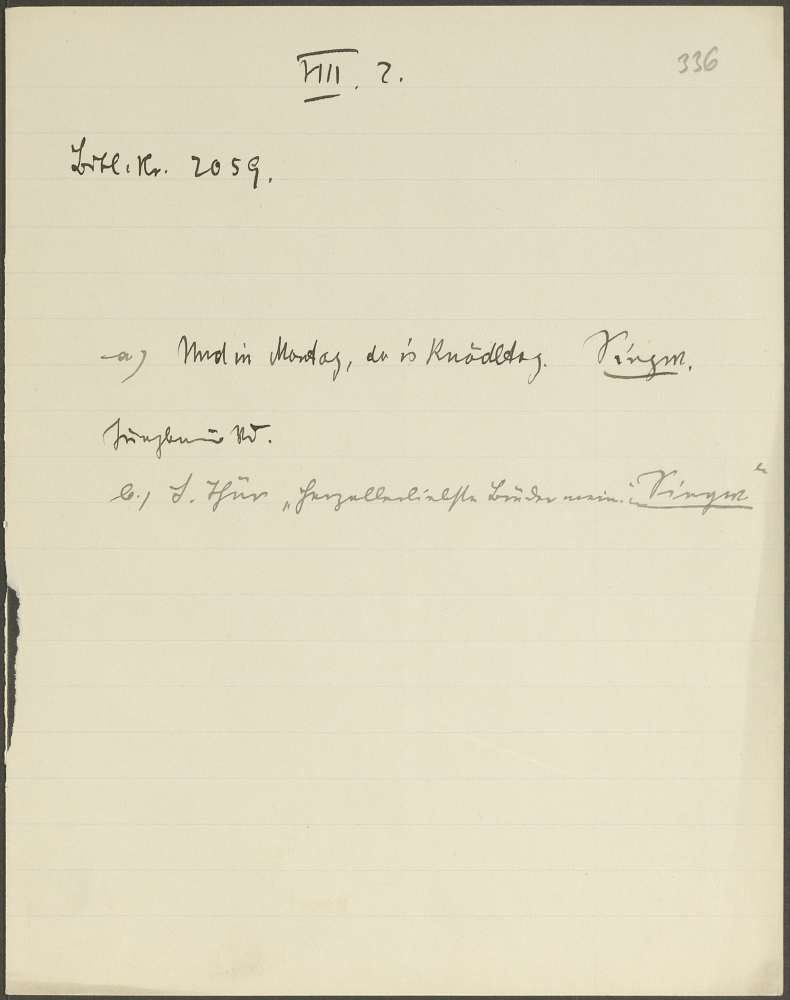 VIII. 2.
336
Bibl. Nr. 2059.
a) Und in Montag, da is Knödltag. Singw.
Jungbauer Nr.
b.) S. Thür „Herzallerliebste Brüder mein." Singw